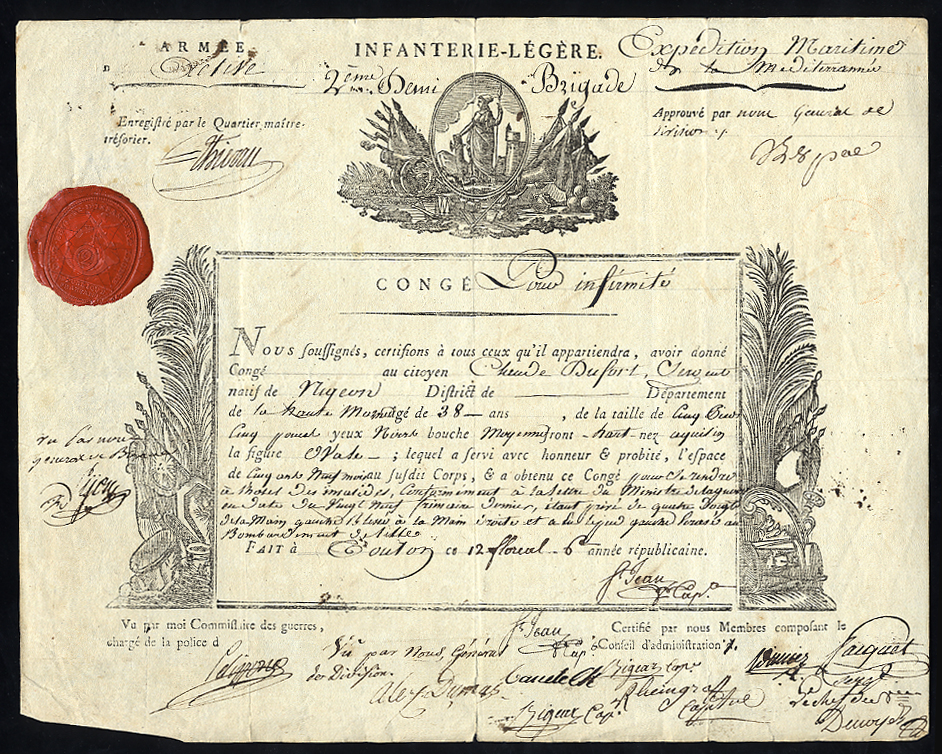 ARMÉE
Active
INFANTERIE-LÉGÈRE.
2ème Demi Brigade
Expédition Maritime
de la Mediterrannée
Enregistré par le Quartier maître-
trésorier.
Approuvé par nous General de
Division
CONGÉ Pour infirmité
Nous soussignés, certifions à tous ceux qu'il appartiendra, avoir donné
Congé au citoyen Claude Dufort, Sergent
natif de Nigeon District de Département
de la haute Marne âgé de 38 ans, de la taille de Cinq pieds
Cinq pouces yeux Noirs bouche Moyenne front haut nez aquilin
la figure Ovale ; lequel a servi avec honneur & probité, l'espace
de Cinq ans Neuf mois au susdit Corps, & a obtenu ce Congé pour se rendre
à l'hotel des invalides, Conformement à la lettre du Ministre de la guerre
en date du Vingt Neuf frimaire dernier, étant privé de quatre doigts
de la Main gauche blessé à la Main droite et a le pied gauche écrasé au
Bombardement de Lille
FAIT à Toulon ce 12 floreal 6e année républicaine.
St Jean
Cap.e
Vu par nous
general de Brigade
Vu par moi Commissaire des guerres,
chargé de la police d
Vu par Nous, Général
de Division.
Alex. Dumas
St Jean
Cap.
Certifié par nous Membres composant le
Conseil d'administration.
Bigeux Cap.e
Rheingraf
Capitne